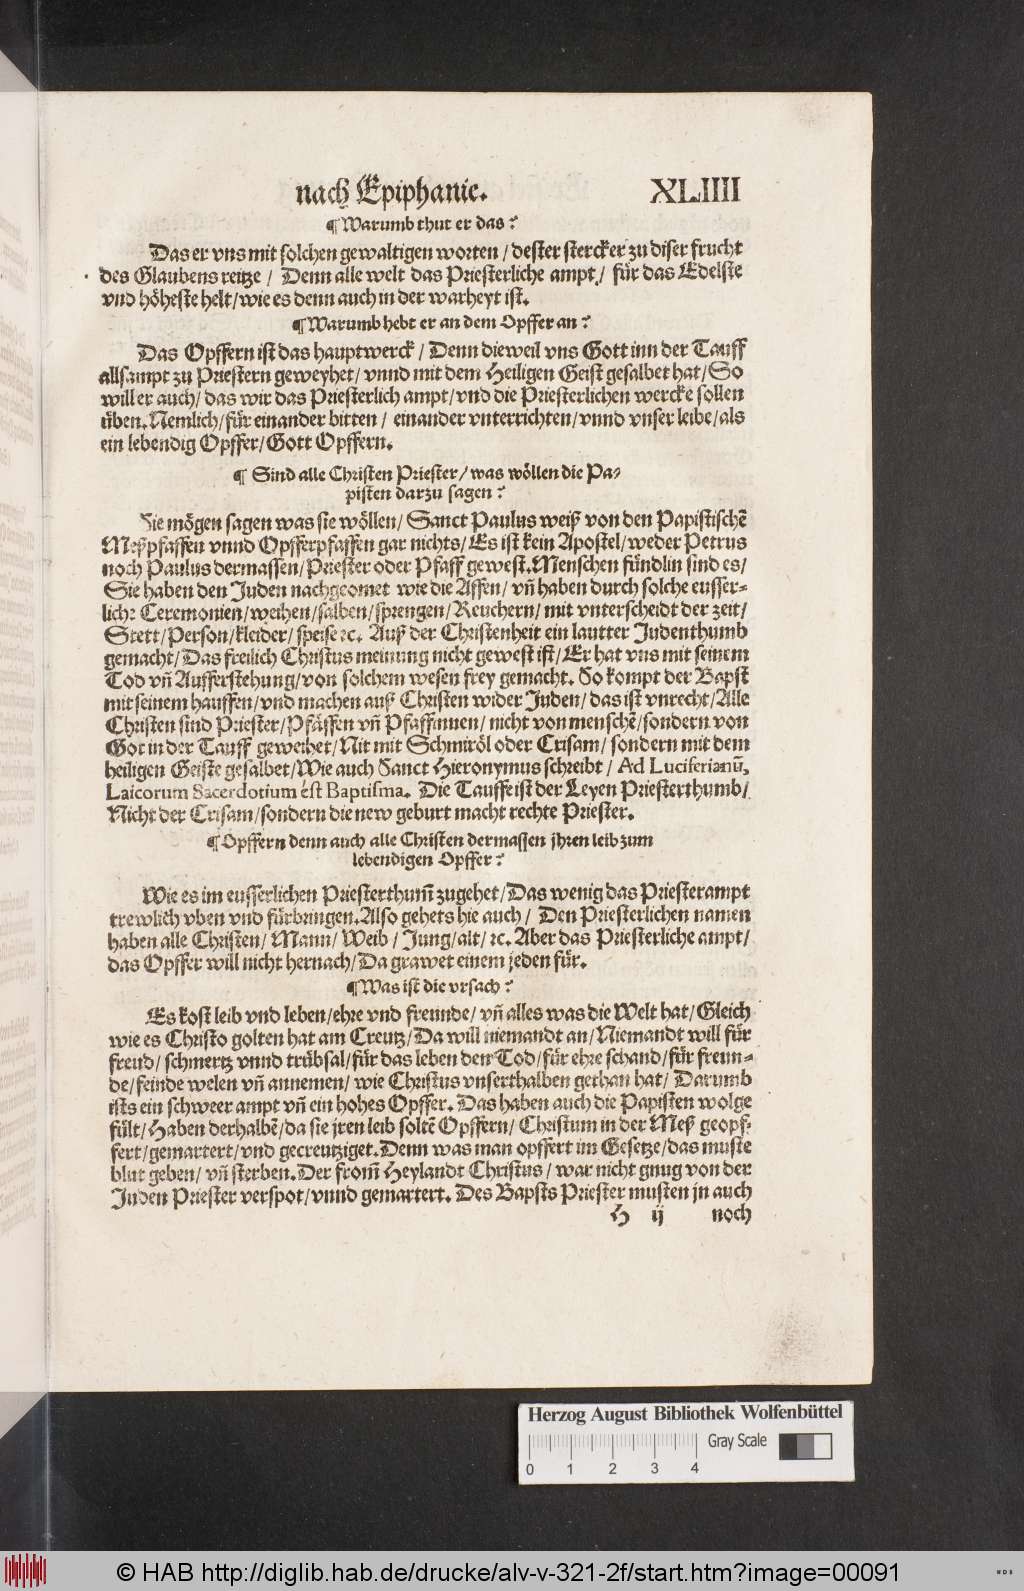 nach Epiphanie. XLIIII
¶ Warumb thut er das?
Das er vns mit solchen gewaltigen worten / dester stercker zu diser frucht
des Glaubens reitze / Denn alle welt das Priesterliche ampt / für das Edelste
vnd höheste helt / wie es denn auch in der warheyt ist.
¶ Warumb hebt er an dem Opffer an?
Das Opffern ist das hauptwerck / Denn dieweil vns Gott inn der Tauff
allsampt zu Priestern geweyhet / vnnd mit dem Heiligen Geist gesalbet hat / So
will er auch / das wir das Priesterlich ampt / vnd die Priesterlichen wercke sollen
üben. Nemlich / für einander bitten / einander vnterrichten / vnnd vnser leibe / als
ein lebendig Opffer / Gott Opffern.
¶ Sind alle Christen Priester / was wöllen die Pa-
pisten darzu sagen?
Sie mögen sagen was sie wöllen / Sanct Paulus weiß von den Papistischē
Meßpfaffen vnnd Opfferpfaffen gar nichts / Es ist kein Apostel / weder Petrus
noch Paulus dermassen / Priester oder Pfaff gewest. Menschen fündlin sind es /
Sie haben den Juden nachgeomet wie die Affen / vñ haben durch solche eusser-
liche Ceremonien / weihen / salben / sprengen / Reuchern / mit vnterscheidt der zeit /
Stett / Person / kleider / speise ꝛc. Auß der Christenheit ein lautter Judenthumb
gemacht / Das freilich Christus meinung nicht gewest ist / Er hat vns mit seinem
Tod vñ Aufferstehung / von solchem wesen frey gemacht. So kompt der Bapst
mit seinem hauffen / vnd machen auß Christen wider Juden / das ist vnrecht / Alle
Christen sind Priester / Pfäffen vñ Pfaffinnen / nicht von menschē / sondern von
Got in der Tauff geweihet / Nit mit Schmiröl oder Crisam / sondern mit dem
heiligen Geiste gesalbet / Wie auch Sanct Hieronymus schreibt / Ad Luciferianū,
Laicorum Sacerdotium est Baptisma. Die Tauffe ist der Leyen Priesterthumb /
Nicht der Crisam / sondern die new geburt macht rechte Priester.
¶ Opffern denn auch alle Christen dermassen jhren leib zum
lebendigen Opffer?
Wie es im eusserlichen Priesterthum̄ zugehet / Das wenig das Priesterampt
trewlich vben vnd fürbringen. Also gehets hie auch / Den Priesterlichen namen
haben alle Christen / Mann / Weib / Jung / alt / ꝛc. Aber das Priesterliche ampt /
das Opffer will nicht hernach / Da grawet einem jeden für.
¶ Was ist die vrsach?
Es kost leib vnd leben / ehre vnd freunde / vñ alles was die Welt hat / Gleich
wie es Christo golten hat am Creutz / Da will niemandt an / Niemandt will für
freud / schmertz vnnd trübsal / für das leben den Tod / für ehre schand / für freun-
de / feinde welen vñ annemen / wie Christus vnserthalben gethan hat / Darumb
ists ein schweer ampt vñ ein hohes Opffer. Das haben auch die Papisten wolge
fült / Haben derhalbē / da sie jren leib soltē Opffern / Christum in der Meß geopf-
fert / gemartert / vnd gecreutziget. Denn was man opffert im Gesetze / das muste
blut geben / vñ sterben. Der from̄ Heylandt Christus / war nicht gnug von der
Juden Priester verspot / vnnd gemartert. Des Bapsts Priester musten jn auch
H ij noch
Herzog August Bibliothek Wolfenbüttel
Gray Scale
0 1 2 3 4
© HAB http://diglib.hab.de/drucke/alv-v-321-2f/start.htm?image=00091